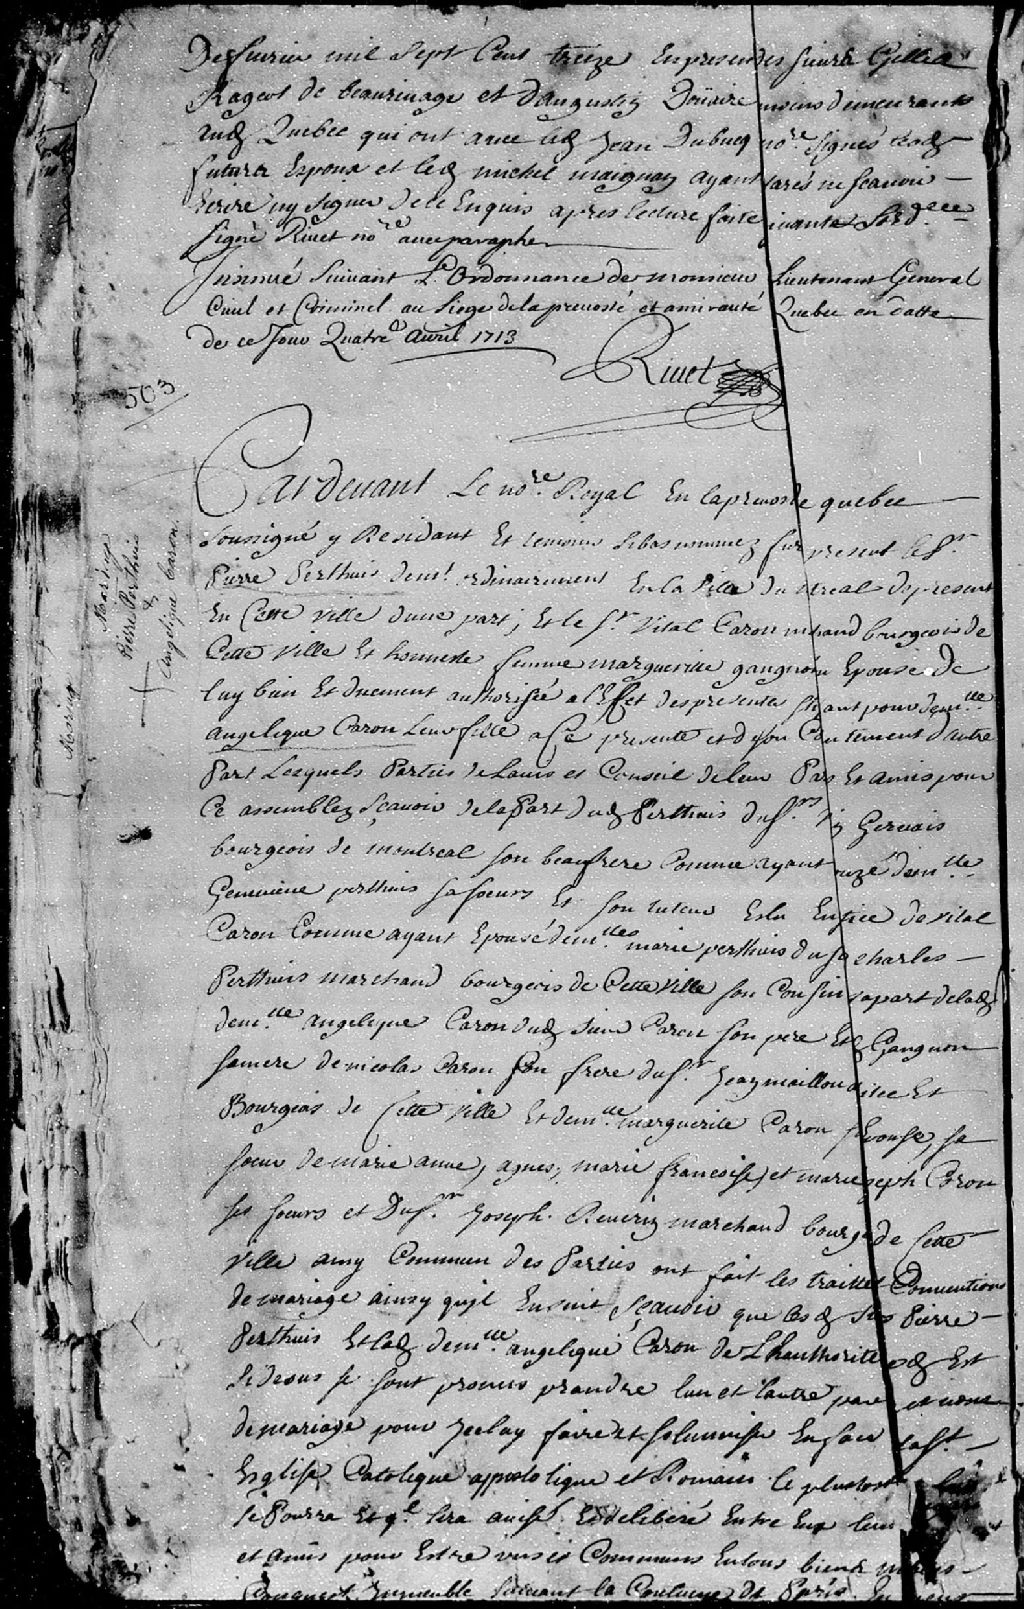 De feurier mil Sept Cent treize En presences sieurs Gilles
Rageot de beaurinage et D'augustin Doüaire demeurants
aud Quebec qui ont avec led Jean Dubucq no.re signés
futurs Espoux et led michel maignan ayant declarés ne scauoir
Escrire ny signer de ce Enquis apres lecture faite suivant Lord.ce
Signé Riuet no.re auec paraphe
Insinué Suiuant L'Ordonnance de monsieur Lieutenant General
Ciuil et Criminel au Siege de la preuosté et amirauté Quebec en datte
de ce Jour Quatre Auril 1713
Riuet
503
Pardeuant Le no.re Royal En la preuosté quebec
Soussigné y Residant Et temoins Sebas nommez fut present le Sr.
Pierre Perthuis demt. ordinairement En la Ville du Mreal de present
En Cette Ville d'une part, Et le Sr. Vital Caron mchand bourgeois de
Cette Ville Et honneste femme marguerite gangnon Epouse De
luy bien Et duement authorisée a l'Effet des presentes Stipant pour demlle
angelique Caron Leur fille a Ce presente et de son Consentement d'autre
Part Lesquels Parties de Lauis et Conseil de leur Pars Et amis pour
Ce assemblez Scauoir de la Part dud Perthuis du Sr. Gervais
bourgeois de montreal son beaufrere Comme ayant Epouzé demlle
Geneuieue perthuis sa soeur Et son tuteur Eslu En Justice de Vital
Caron Comme ayant Epousé demlle marie perthuis du Sr charles
Perthuis marchand bourgeois de Cette Ville son Cousin la part de lad
demlle angelique Caron dud sieur Caron son pere Et Gangnon
sa mere de nicolas Caron son frere du Sr. Jean maillou Et
Bourgeois de Cette Ville Et demlle marguerite Caron son Epouse, sa
soeur de marie anne, agnes, marie francoise, et marie Joseph Caron
ses soeurs et Du Sr. Joseph Reuerin marchand bourgs de Cette
Ville amy Commun des Parties ont fait les traitté Conuentions
de mariage ainsy quil Ensuit Scauoir que lesd Srs Pierre
Perthuis Et lad demlle angelique Caron de L'hauthorite Est
Sidesus se sont promis prandre lun et lautre par et nom
de mariage pour Jceluy faire Et solemniser En face la St.
Esglise Catolique appostolique et Romain le plustost
se Pourra Et ql. sera auisé Et deliberé Entre Eux leur
et amis pour Estre unis et Communs En tous biens meubles
Conquest Immeuble Suiuant la Coutume de Paris
Mariage
Pierre Perthuis
&
Angelique Caron
Mariage